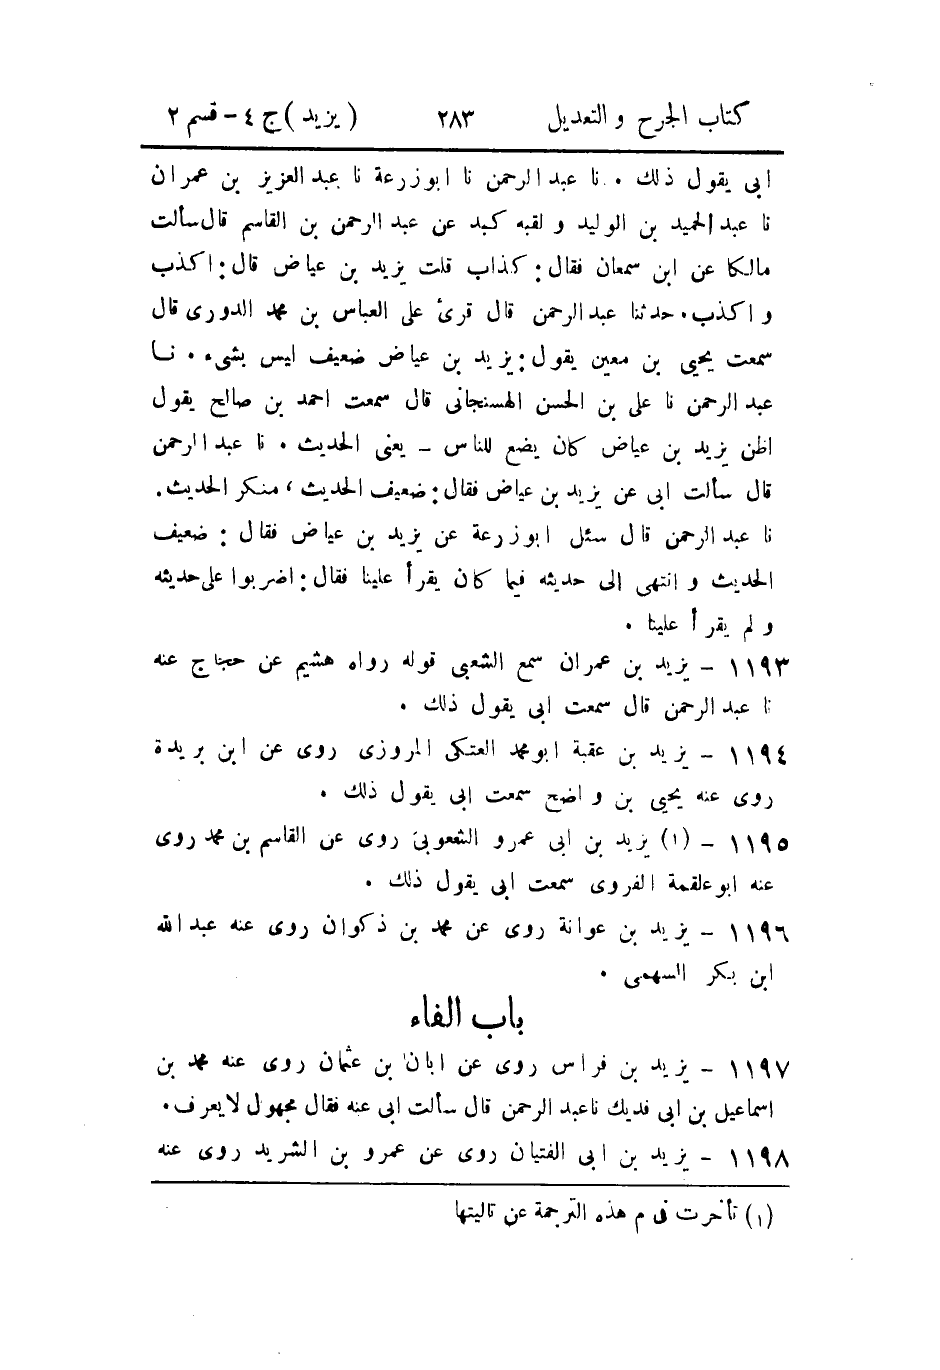 كتاب الجرح والتعديل ٢٨٣ (يزيد) ج ٤ - قسم ٢
ابى يقول ذلك . نا عبد الرحمن نا ابو زرعة نا عبد العزيز بن عمران
نا عبد الحميد بن الوليد و لقبه كبد عن عبد الرحمن بن القاسم قال سألت
مالكا عن ابن سمعان فقال: كذاب قلت يزيد بن عياض قال: اكذب
و اكذب. حدثنا عبد الرحمن قال قرئ على العباس بن محمد الدورى قال
سمعت يحيى بن معين يقول: يزيد بن عياض ضعيف ليس بشىء . نا
عبد الرحمن نا على بن الحسن الهسنجانى قال سمعت احمد بن صالح يقول
اظن يزيد بن عياض كان يضع للناس - يعنى الحديث . نا عبد الرحمن
قال سألت ابى عن يزيد بن عياض فقال: ضعيف الحديث ، منكر الحديث.
نا عبد الرحمن قال سئل ابو زرعة عن يزيد بن عياض فقال : ضعيف
الحديث و انتهى الى حديثه فيما كان يقرأ علينا فقال: اضربوا على حديثه
و لم يقرأ علينا .
١١٩٣ - يزيد بن عمران سمع الشعبى قوله رواه هشيم عن حجاج عنه
نا عبد الرحمن قال سمعت ابى يقول ذلك .
١١٩٤ - يزيد بن عقبة ابو محمد العتكى المروزى روى عن ابن بريدة
روى عنه يحيى بن واضح سمعت ابى يقول ذلك .
١١٩٥ - (١) يزيد بن ابى عمرو الشعوبى روى عن القاسم بن محمد روى
عنه ابو علقمة الفروى سمعت ابى يقول ذلك .
١١٩٦ - يزيد بن عوانة روى عن محمد بن ذكوان روى عنه عبد الله
ابن بكر السهمى .
باب الفاء
١١٩٧ - يزيد بن فراس روى عن ابان بن عثمان روى عنه محمد بن
اسماعيل بن ابى فديك نا عبد الرحمن قال سألت ابى عنه فقال مجهول لا يعرف.
١١٩٨ - يزيد بن ابى الفتيان روى عن عمرو بن الشريد روى عنه
(١) تأخرت فى م هذه الترجمة عن تاليتها